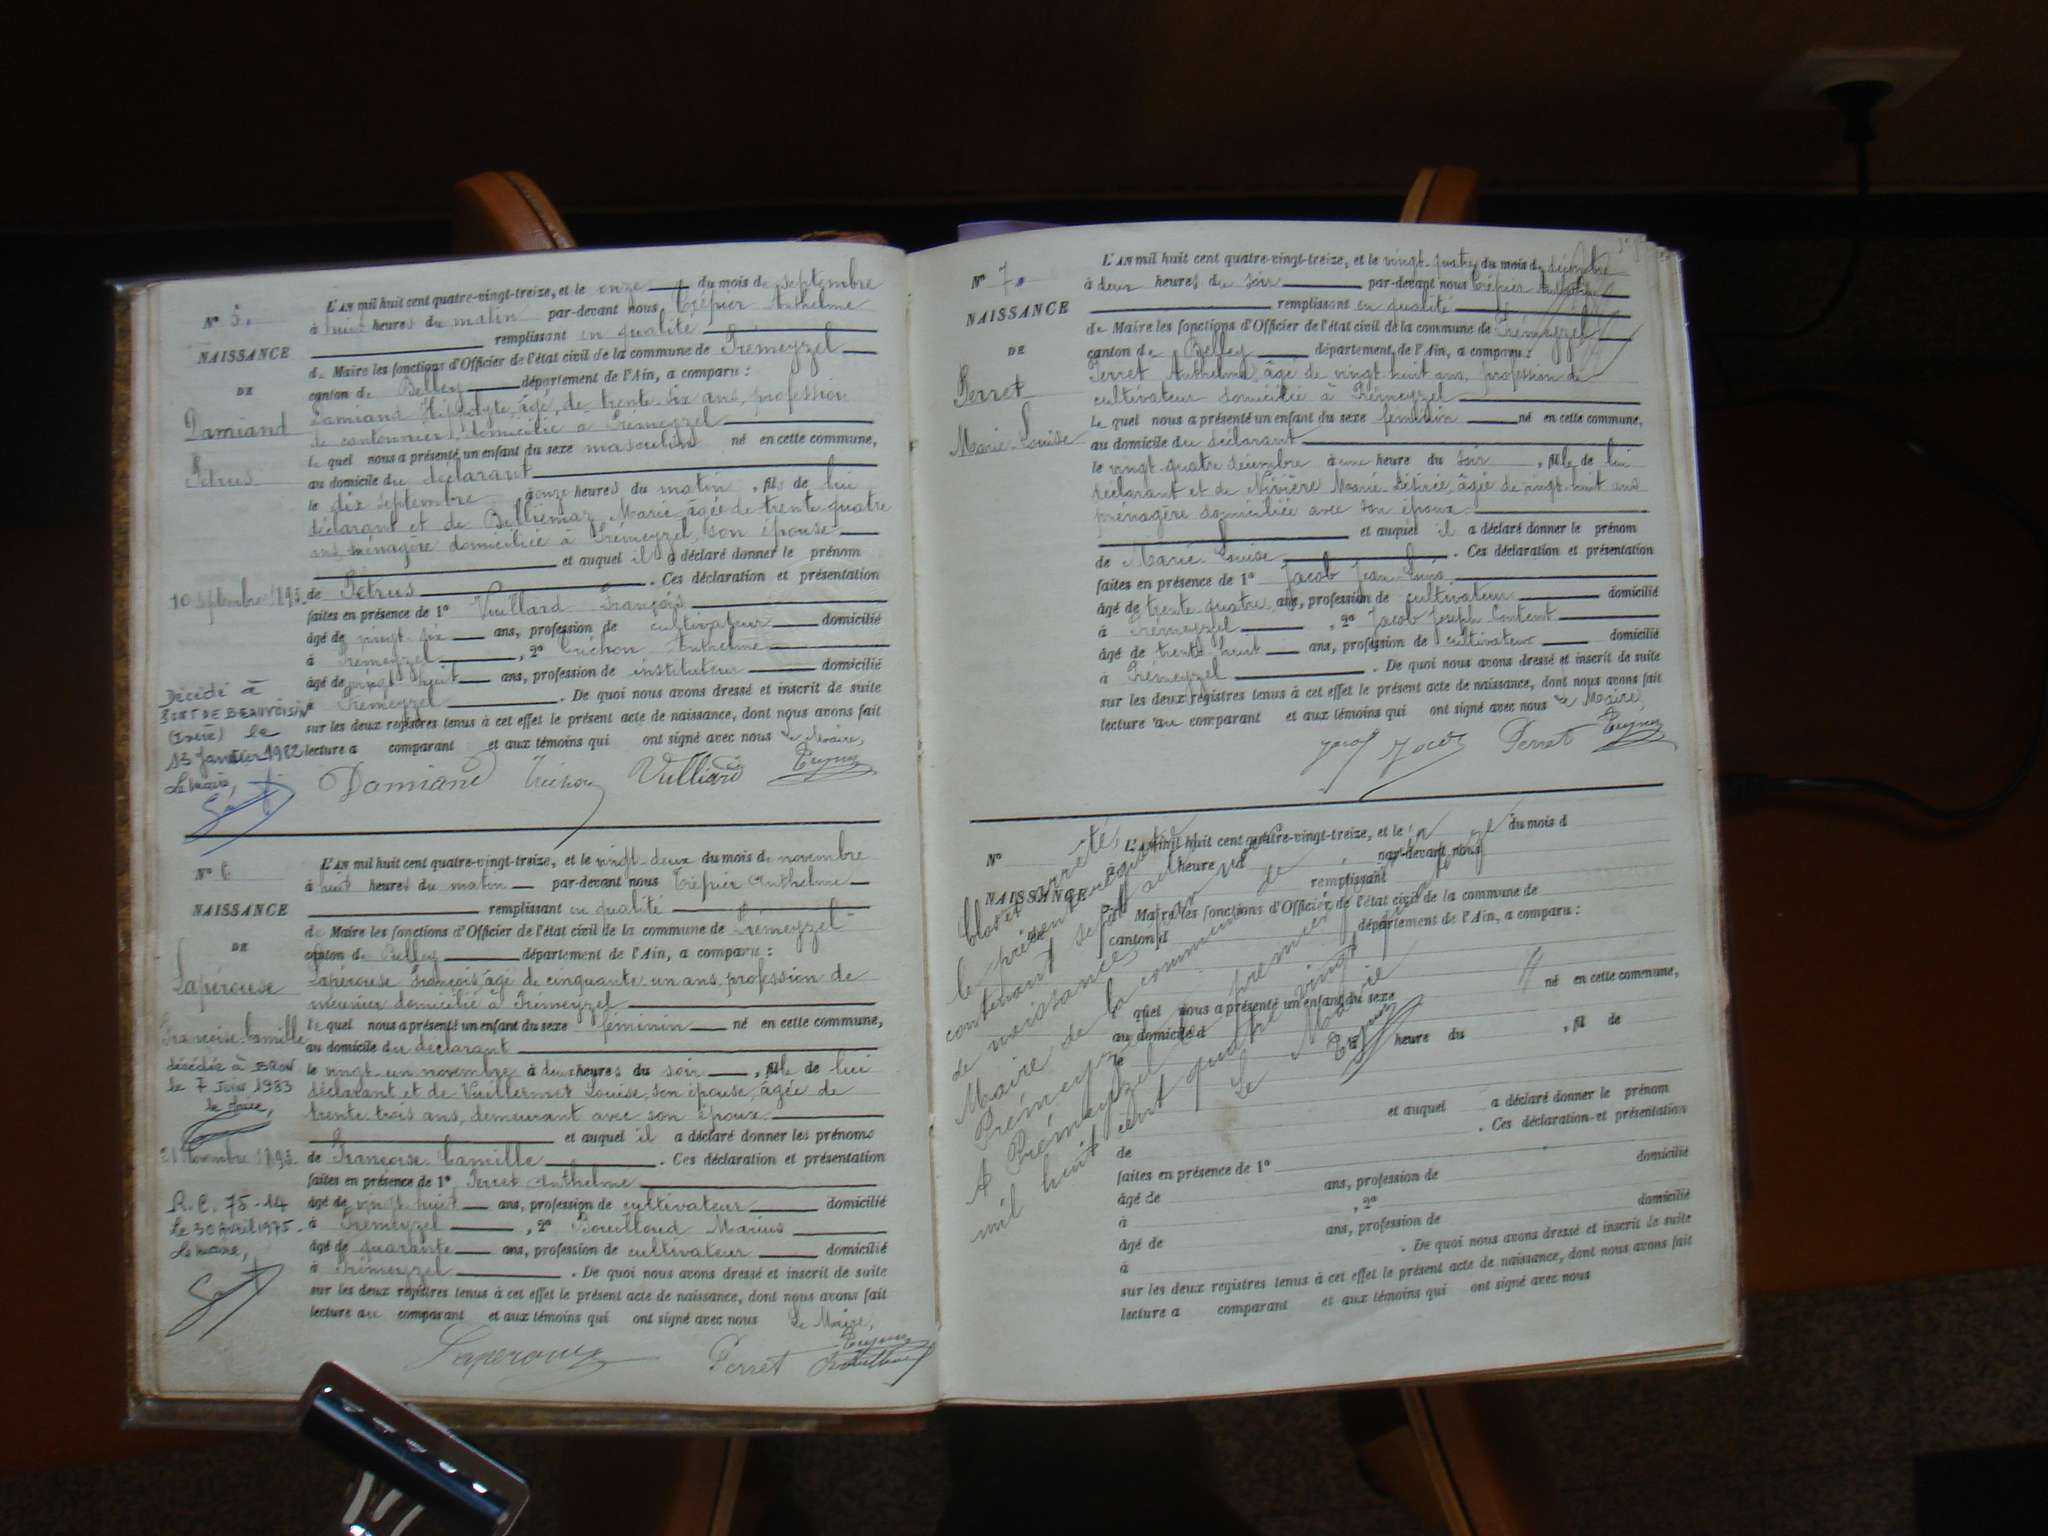 N° 5.
NAISSANCE
DE
Damiand
Pétrus
10 septembre 1893.
Décédé à
PONT DE BEAUVOISIN
(Isère) le
13 Janvier 1982
Le Maire,
L'AN mil huit cent quatre-vingt-treize, et le onze du mois de septembre
à huit heures du matin par-devant nous Trépier Anthelme
remplissant en qualité
de Maire les fonctions d'Officier de l'état civil de la commune de Prémeyzel
canton de Belley département de l'Ain, a comparu :
Damiand Hippolyte, âgé de trente-six ans, profession
de cantonnier, domicilié à Prémeyzel
le quel nous a présenté un enfant du sexe masculin né en cette commune,
au domicile du déclarant
le dix septembre à onze heures du matin, fils de lui
déclarant et de Belliemaz Marie, âgée de trente-quatre
ans, ménagère domiciliée à Prémeyzel, son épouse
et auquel il a déclaré donner le prénom
de Pétrus . Ces déclaration et présentation
faites en présence de 1° Vuillard François
âgé de vingt six ans, profession de cultivateur domicilié
à Prémeyzel , 2° Trichon Anthelme
âgé de vingt huit ans, profession de instituteur domicilié
à Prémeyzel . De quoi nous avons dressé et inscrit de suite
sur les deux registres tenus à cet effet le présent acte de naissance, dont nous avons fait
lecture a comparant et aux témoins qui ont signé avec nous le Maire,
Damiand Trichon Vuilliard
N° 6
NAISSANCE
DE
Lapérouse
Françoise-Camille
décédée à BRON
le 7 Juin 1983
le Maire,
21 Novembre 1893.
R.C. 75-14
Le 30 Avril 1975.
Le Maire,
L'AN mil huit cent quatre-vingt-treize, et le vingt-deux du mois de novembre
à huit heures du matin par-devant nous Trépier Anthelme
remplissant en qualité
de Maire les fonctions d'Officier de l'état civil de la commune de Prémeyzel
canton de Belley département de l'Ain, a comparu :
Lapérouse François, âgé de cinquante-un ans, profession de
meunier domicilié à Prémeyzel
le quel nous a présenté un enfant du sexe féminin né en cette commune,
au domicile du déclarant
le vingt-un novembre à deux heures du soir , fille de lui
déclarant et de Vuillermet Louise, son épouse, âgée de
trente-trois ans, demeurant avec son époux.
et auquel il a déclaré donner les prénoms
de Françoise-Camille . Ces déclaration et présentation
faites en présence de 1° Perret Anthelme
âgé de vingt huit ans, profession de cultivateur domicilié
à Prémeyzel , 2° Bouilloud Marius
âgé de quarante ans, profession de cultivateur domicilié
à Prémeyzel . De quoi nous avons dressé et inscrit de suite
sur les deux registres tenus à cet effet le présent acte de naissance, dont nous avons fait
lecture au comparant et aux témoins qui ont signé avec nous le Maire,
Laperouse Perret
N° 7.
NAISSANCE
DE
Perret
Marie-Louise
L'AN mil huit cent quatre-vingt-treize, et le vingt-quatre du mois de décembre
à deux heures du soir par-devant nous Trépier Anthelme
remplissant en qualité
de Maire les fonctions d'Officier de l'état civil de la commune de Prémeyzel
canton de Belley département de l'Ain, a comparu :
Perret Anthelme, âgé de vingt-huit ans, profession de
cultivateur domicilié à Prémeyzel
le quel nous a présenté un enfant du sexe féminin né en cette commune,
au domicile du déclarant
le vingt quatre décembre à une heure du soir , fille de lui
déclarant et de Nivière Marie-Désirée, âgée de vingt-huit ans
ménagère domiciliée avec son époux.
et auquel il a déclaré donner le prénom
de Marie-Louise . Ces déclaration et présentation
faites en présence de 1° Jacob Jean-Louis
âgé de trente-quatre ans, profession de cultivateur domicilié
à Prémeyzel , 2° Jacob Joseph Content
âgé de trente huit ans, profession de cultivateur domicilié
à Prémeyzel . De quoi nous avons dressé et inscrit de suite
sur les deux registres tenus à cet effet le présent acte de naissance, dont nous avons fait
lecture au comparant et aux témoins qui ont signé avec nous le Maire,
Jacob Jacob Perret
N°
NAISSANCE
de
L'AN mil huit cent quatre-vingt-treize, et le du mois d
à heure d par-devant nous
remplissant
d Maire les fonctions d'Officier de l'état civil de la commune de
canton d département de l'Ain, a comparu :
quel nous a présenté un enfant du sexe né en cette commune,
au domicile d
le à heure du , fil de
et auquel a déclaré donner le prénom
de . Ces déclaration et présentation
faites en présence de 1°
âgé de ans, profession de domicilié
à , 2°
âgé de ans, profession de domicilié
à . De quoi nous avons dressé et inscrit de suite
sur les deux registres tenus à cet effet le présent acte de naissance, dont nous avons fait
lecture a comparant et aux témoins qui ont signé avec nous
Clos et arrêté
le présent registre
contenant sept actes
de naissance, par nous
Maire de la commune de
Prémeyzel
A Prémeyzel le premier janvier
mil huit cent quatre vingt quatorze
Le Maire